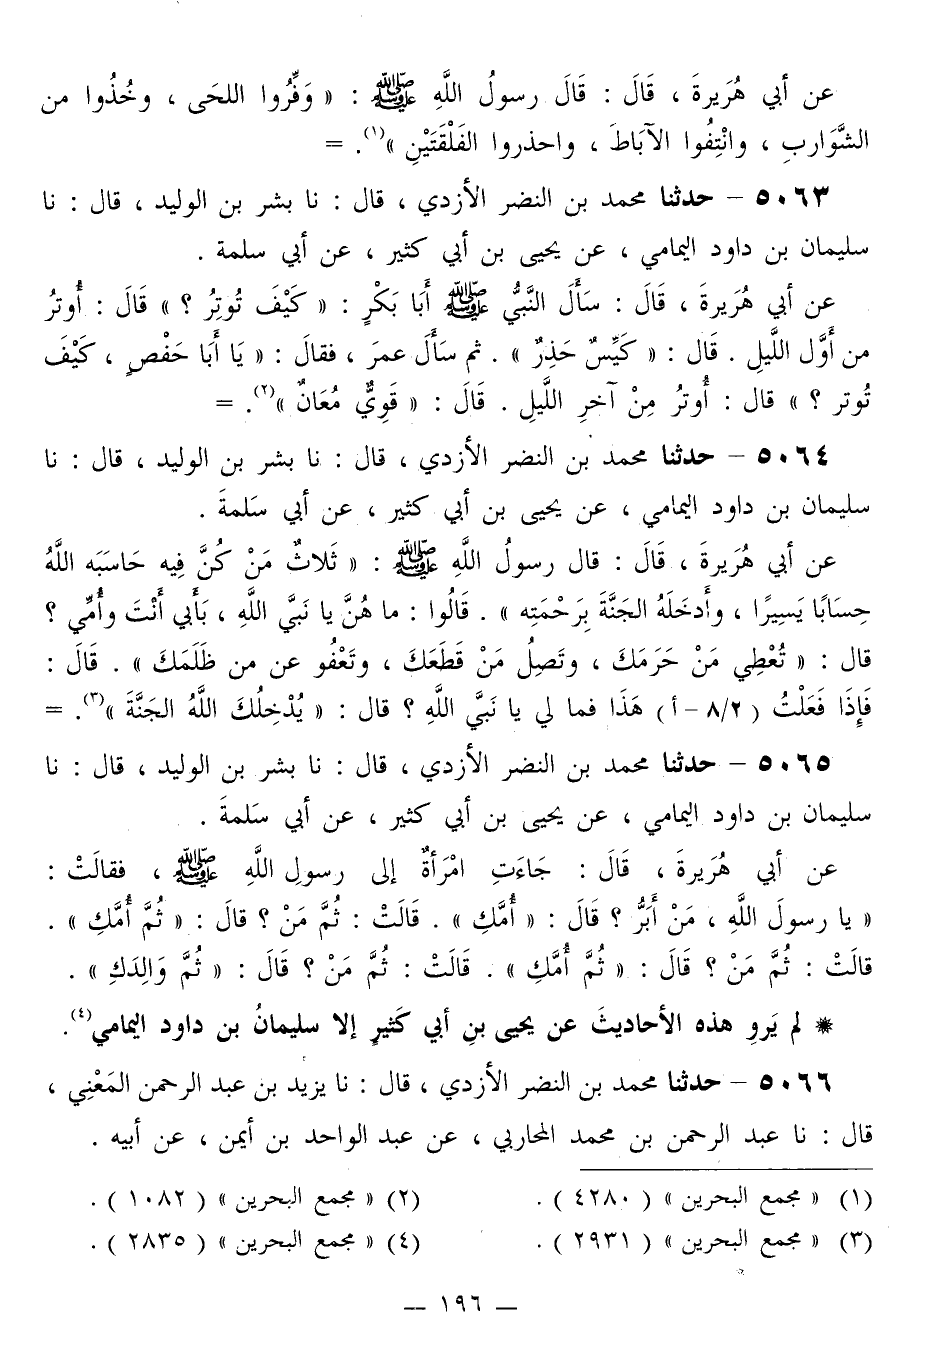 عن أبي هُرَيرةَ ، قَالَ : قَالَ رسولُ اللَّهِ ﷺ : « وَفِّرُوا اللحَى ، وخُذُوا من
الشَّوَاربِ ، وانْتِفُوا الآبَاطَ ، واحذروا الفَلْقَتَيْنِ »(١). =
٥٠٦٣ – حدثنا محمد بن النضر الأزدي ، قال : نا بشر بن الوليد ، قال : نا
سليمان بن داود اليمامي ، عن يحيى بن أبي كثير ، عن أبي سلمة .
عن أبي هُرَيرةَ ، قَالَ : سَأَلَ النَّبيُّ ﷺ أَبَا بَكْرٍ : « كَيْفَ تُوتِرُ ؟ » قَالَ : أُوتِرُ
من أَوَّل الليلِ . قَال : « كَيِّسٌ حَذِرٌ » . ثم سَأَلَ عمرَ ، فقالَ : « يَا أَبَا حَفْصٍ ، كَيْفَ
تُوتر ؟ » قال : أُوتِرُ مِنْ آخرِ اللَّيلِ . قَالَ : « قَوِيٌّ مُعَانٌ »(٢). =
٥٠٦٤ – حدثنا محمد بن النضر الأزدي ، قال : نا بشر بن الوليد ، قال : نا
سليمان بن داود اليمامي ، عن يحيى بن أبي كثير ، عن أبي سَلمةَ .
عن أبي هُرَيرةَ ، قَالَ : قال رسولُ اللَّهِ ﷺ : « ثَلاثٌ مَنْ كُنَّ فِيه حَاسَبَه اللَّهُ
حِسَابًا يَسِيرًا ، وأَدخَلَهُ الجَنَّةَ بِرَحْمَتِه » . قَالُوا : ما هُنَّ يا نَبيَّ اللَّهِ ، بَأَبي أَنْتَ وأُمِّي ؟
قال : « تُعْطِي مَنْ حَرَمَكَ ، وتَصِلُ مَنْ قَطَعَكَ ، وتَعْفُو عن من ظَلَمَكَ » . قَالَ :
فَإِذَا فَعَلْتُ ( ٨/٢ – أ ) هَذَا فما لي يا نَبيَّ اللَّهِ ؟ قال : « يُدْخِلُكَ اللَّهُ الجَنَّةَ »(٣). =
٥٠٦٥ – حدثنا محمد بن النضر الأزدي ، قال : نا بشر بن الوليد ، قال : نا
سليمان بن داود اليمامي ، عن يحيى بن أبي كثير ، عن أبي سَلمةَ .
عن أبي هُرَيرةَ ، قَالَ : جَاءَتِ امْرَأةٌ إلى رسولِ اللَّهِ ﷺ ، فقالَتْ :
« يا رسولَ اللَّهِ ، مَنْ أَبَرُّ ؟ قَالَ : « أُمَّكِ » . قَالَتْ : ثُمَّ مَنْ ؟ قالَ : « ثُمَّ أُمَّكِ » .
قالَتْ : ثُمَّ مَنْ ؟ قَالَ : « ثُمَّ أُمَّكِ » . قَالَتْ : ثُمَّ مَنْ ؟ قَالَ : « ثُمَّ وَالِدَكِ » .
* لم يَروِ هذه الأحاديثَ عن يحيى بنِ أبي كَثيرٍ إلا سليمانُ بن داود اليمامي(٤).
٥٠٦٦ – حدثنا محمد بن النضر الأزدي ، قال : نا يزيد بن عبد الرحمن المَعْنِي ،
قال : نا عبد الرحمن بن محمد المحاربي ، عن عبد الواحد بن أيمن ، عن أبيه .
(١) « مجمع البحرين » ( ٤٢٨٠ ) .
(٢) « مجمع البحرين » ( ١٠٨٢ ) .
(٣) « مجمع البحرين » ( ٢٩٣١ ) .
(٤) « مجمع البحرين » ( ٢٨٣٥ ) .
— ١٩٦ —